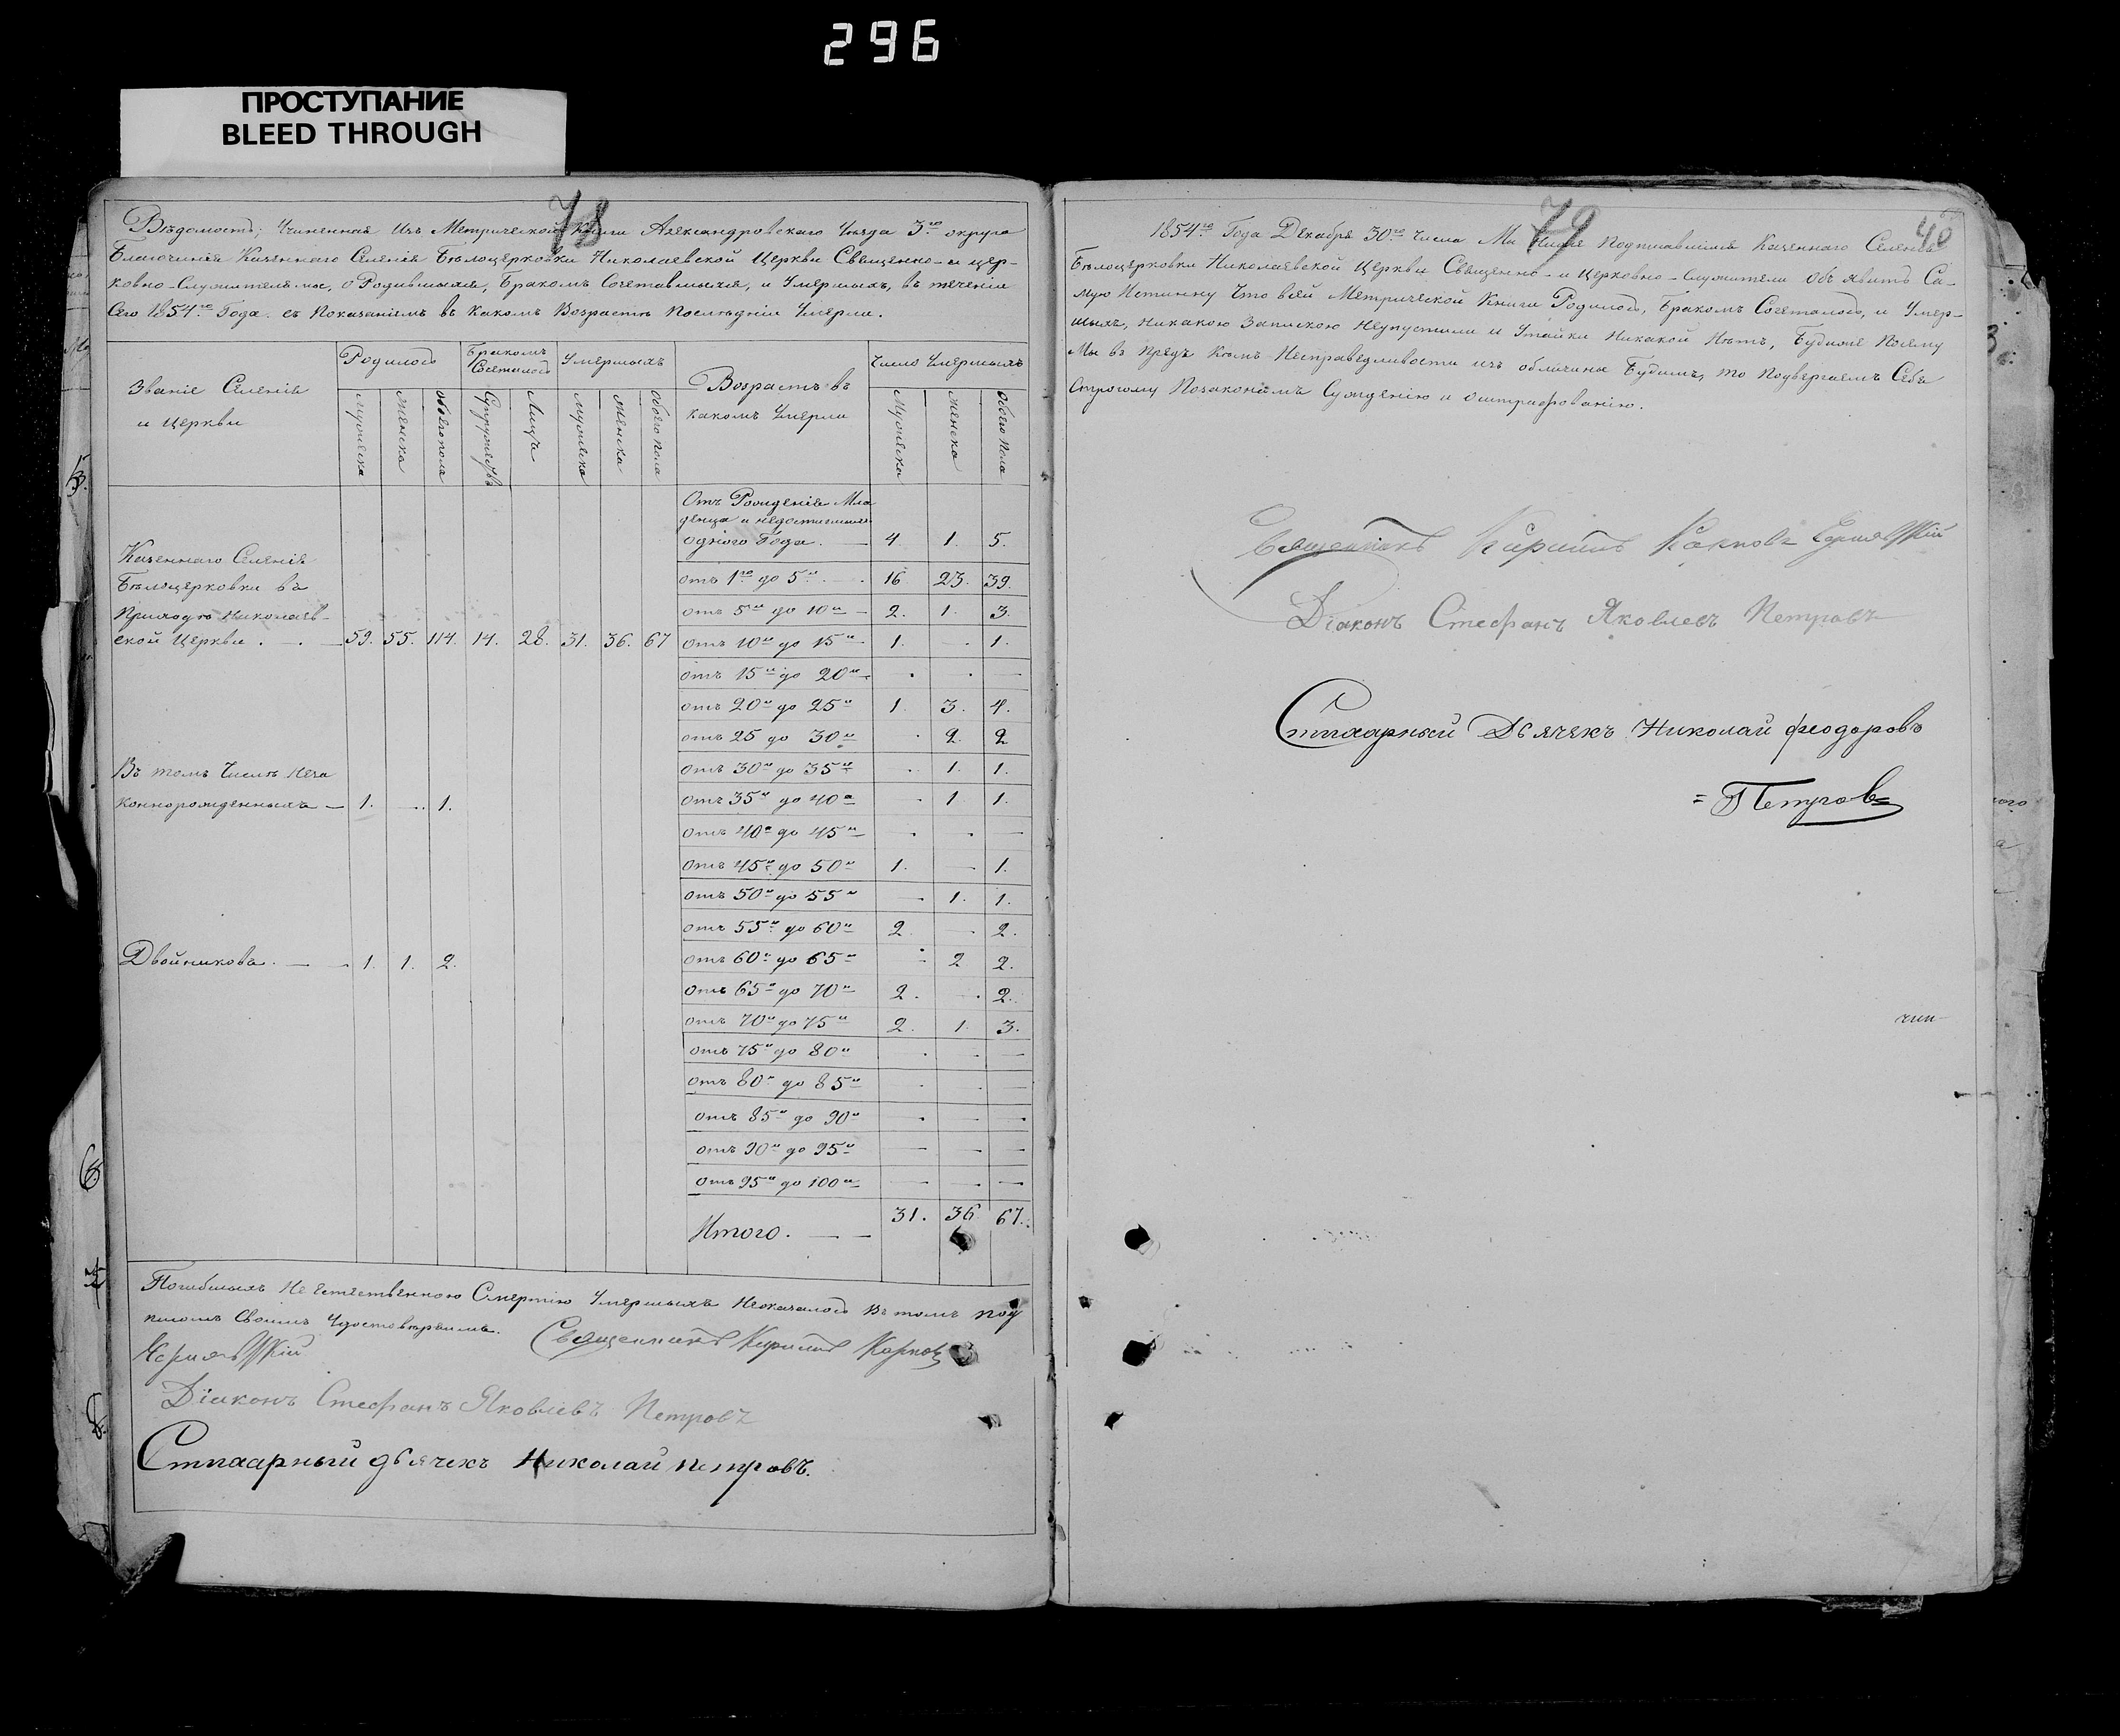 296
ПРОСТУПАНИЕ
BLEED THROUGH
78
Вѣдомость; Учиненная Изъ Метрической Книги Александровскаго Уезда 3го округа
Благочинія Казеннаго Селенія Бѣлоцерковки Николаевской Церкви Священно- и цер-
ковно-Служителями, о Родившихся, Бракомъ Сочетавшихся, и Умершихъ, въ теченіи
Сего 1854го Года съ Показаніемъ въ Какомъ Возрастѣ Послѣдніи Умерли.
Званіе Селенія и Церкви
Родилось
Бракомъ Сочеталось
Умершихъ
Возрастъ въ какомъ Умерли
Число Умершихъ
Мужеска Женска Обоего пола Супружествъ Лицъ Мужеска Женска Обоего пола Мужеска Женска Обоего пола
Отъ Рожденія Мла
денца и недостигших
одного Года. 4 1. 5.
Казеннаго Селенія
Бѣлоцерковки въ
Приходѣ Николаев-
ской Церкви 59. 55. 114. 14. 28. 31. 36. 67
отъ 1го до 5и 16 23. 39.
отъ 5и до 10и 2. 1. 3.
отъ 10и до 15и 1. — 1.
отъ 15и до 20и
отъ 20и до 25и 1. 3. 4.
отъ 25 до 30и 2. 2
Въ томъ Числѣ Неза
коннорожденныхъ 1. 1.
отъ 30и до 35и 1. 1.
отъ 35и до 40а 1 1.
отъ 40а до 45и
отъ 45и до 50и 1. — 1.
отъ 50и до 55и — 1. 1.
отъ 55и до 60и 2. — 2.
Двойникова. 1. 1. 2.
отъ 60и до 65и 2 2.
отъ 65и до 70и 2. 2.
отъ 70и до 75и 2. 1. 3.
отъ 75и до 80и
отъ 80и до 85и
отъ 85и до 90и
отъ 90и до 95и
отъ 95и до 100и
Итого. 31. 36 67.
Погибшихъ Не естественною Смертію Умершихъ Неоказалось Въ томъ под
писомъ Своимъ Удостовѣряемъ. Священникъ Кирилъ Карповъ
Діаконъ Стефанъ Яковлевъ Петровъ
Стихарный дьячекъ Николай Петровъ.
79
40
1854го Года Декабря 30го Числа Ми Ниже Подписавшіися Казеннаго Селенія
Бѣлоцерковки Николаевской Церкви Священно- и Церковно-Служители Объявитъ Са-
мую Истинну Что всей Метрической Книги Родилось, Бракомъ Сочеталось, и Умер-
шихъ, никакою Запискою Неупустили и Утайки Никакой Нѣтъ, Будиже Посему
Мы въ предъ Кѣмъ Несправедливости изъ обличины Будимъ, то Подвергаемъ Себя
Строгому Позаконамъ Сужденію и Оштрафованію.
Священникъ Кирилъ Карповъ
Діаконъ Стефанъ Яковлевъ Петровъ
Стихарный Дьячекъ Николай Феодоровъ
= Петровъ